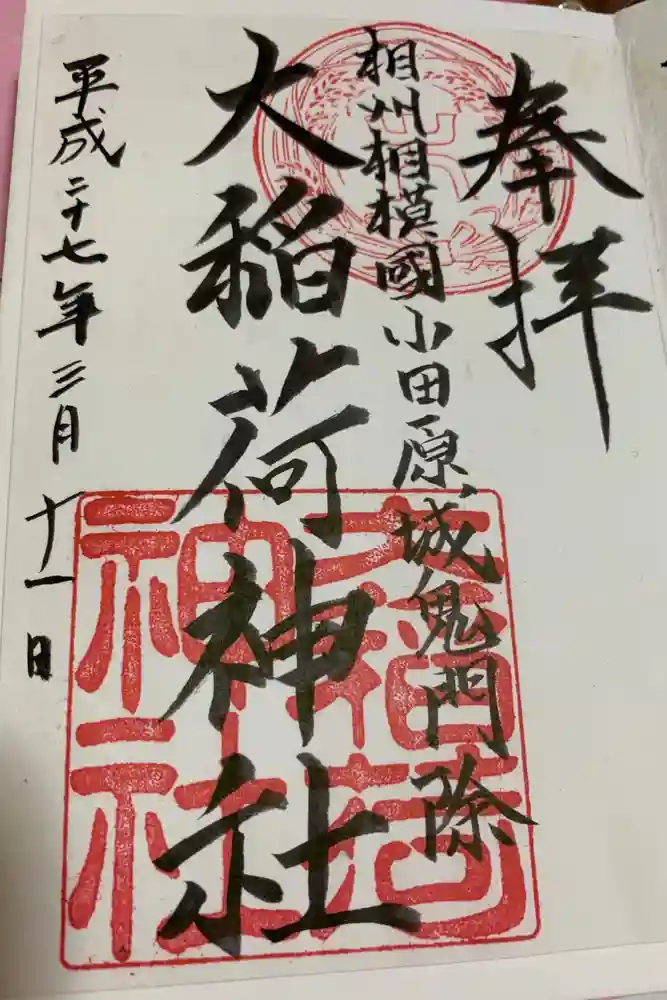 奉拝
相州相模國小田原城鬼門除
大稲荷神社
平成二十七年三月十一日
大稲荷
神社